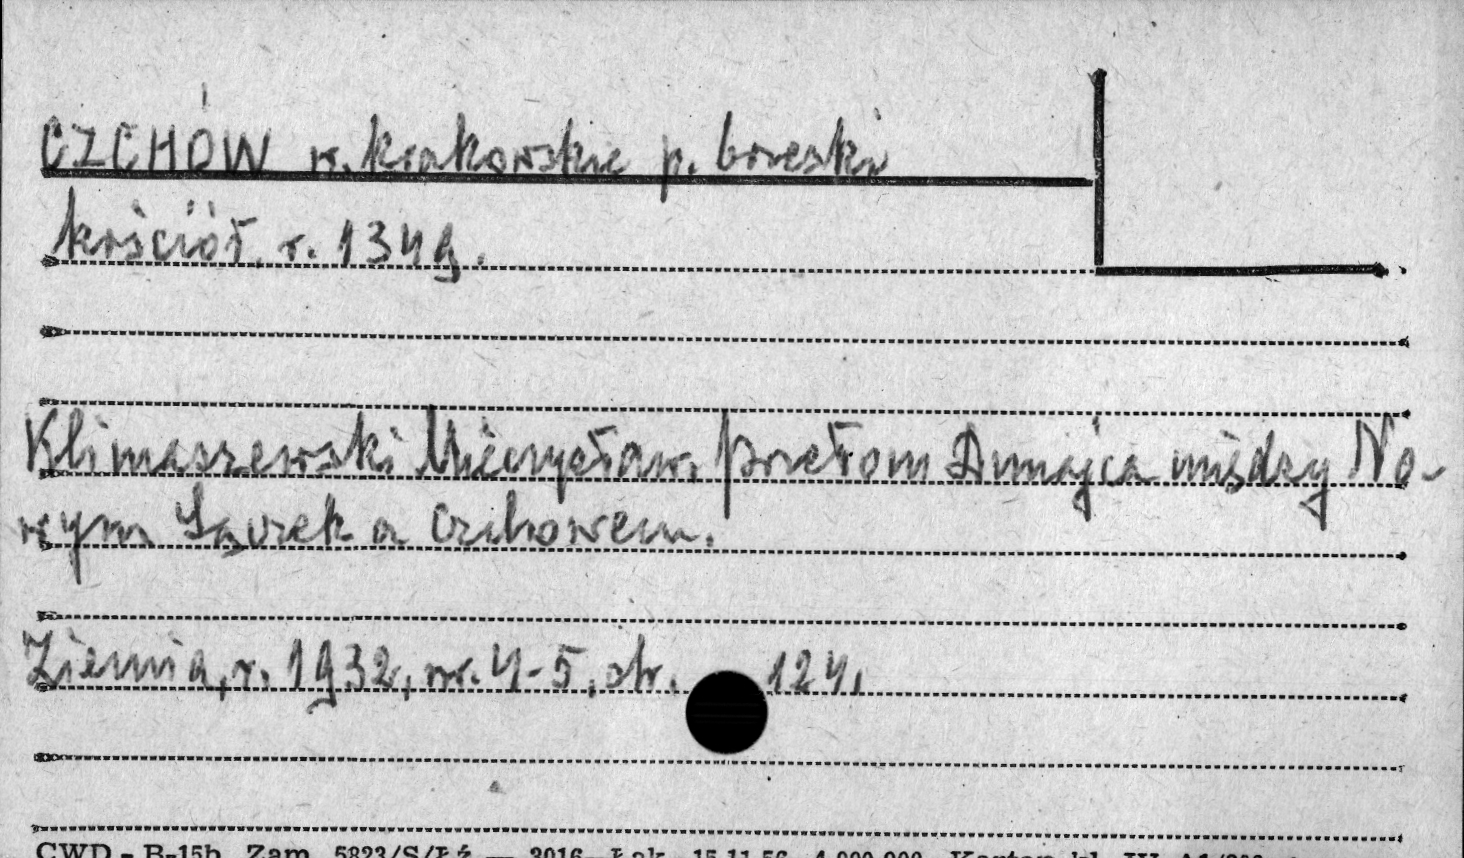 CZCHÓW w. krakowskie p. brzeski
kościół, r. 1349.
Klimaszewski Mieczysław, Przełom Dunajca między No-
wym Sączek a Czchowem.
Ziemia, r. 1932, nr. 4-5, str. 124,
CWD - B-15b Zam. 5823/S/Łź — 3016